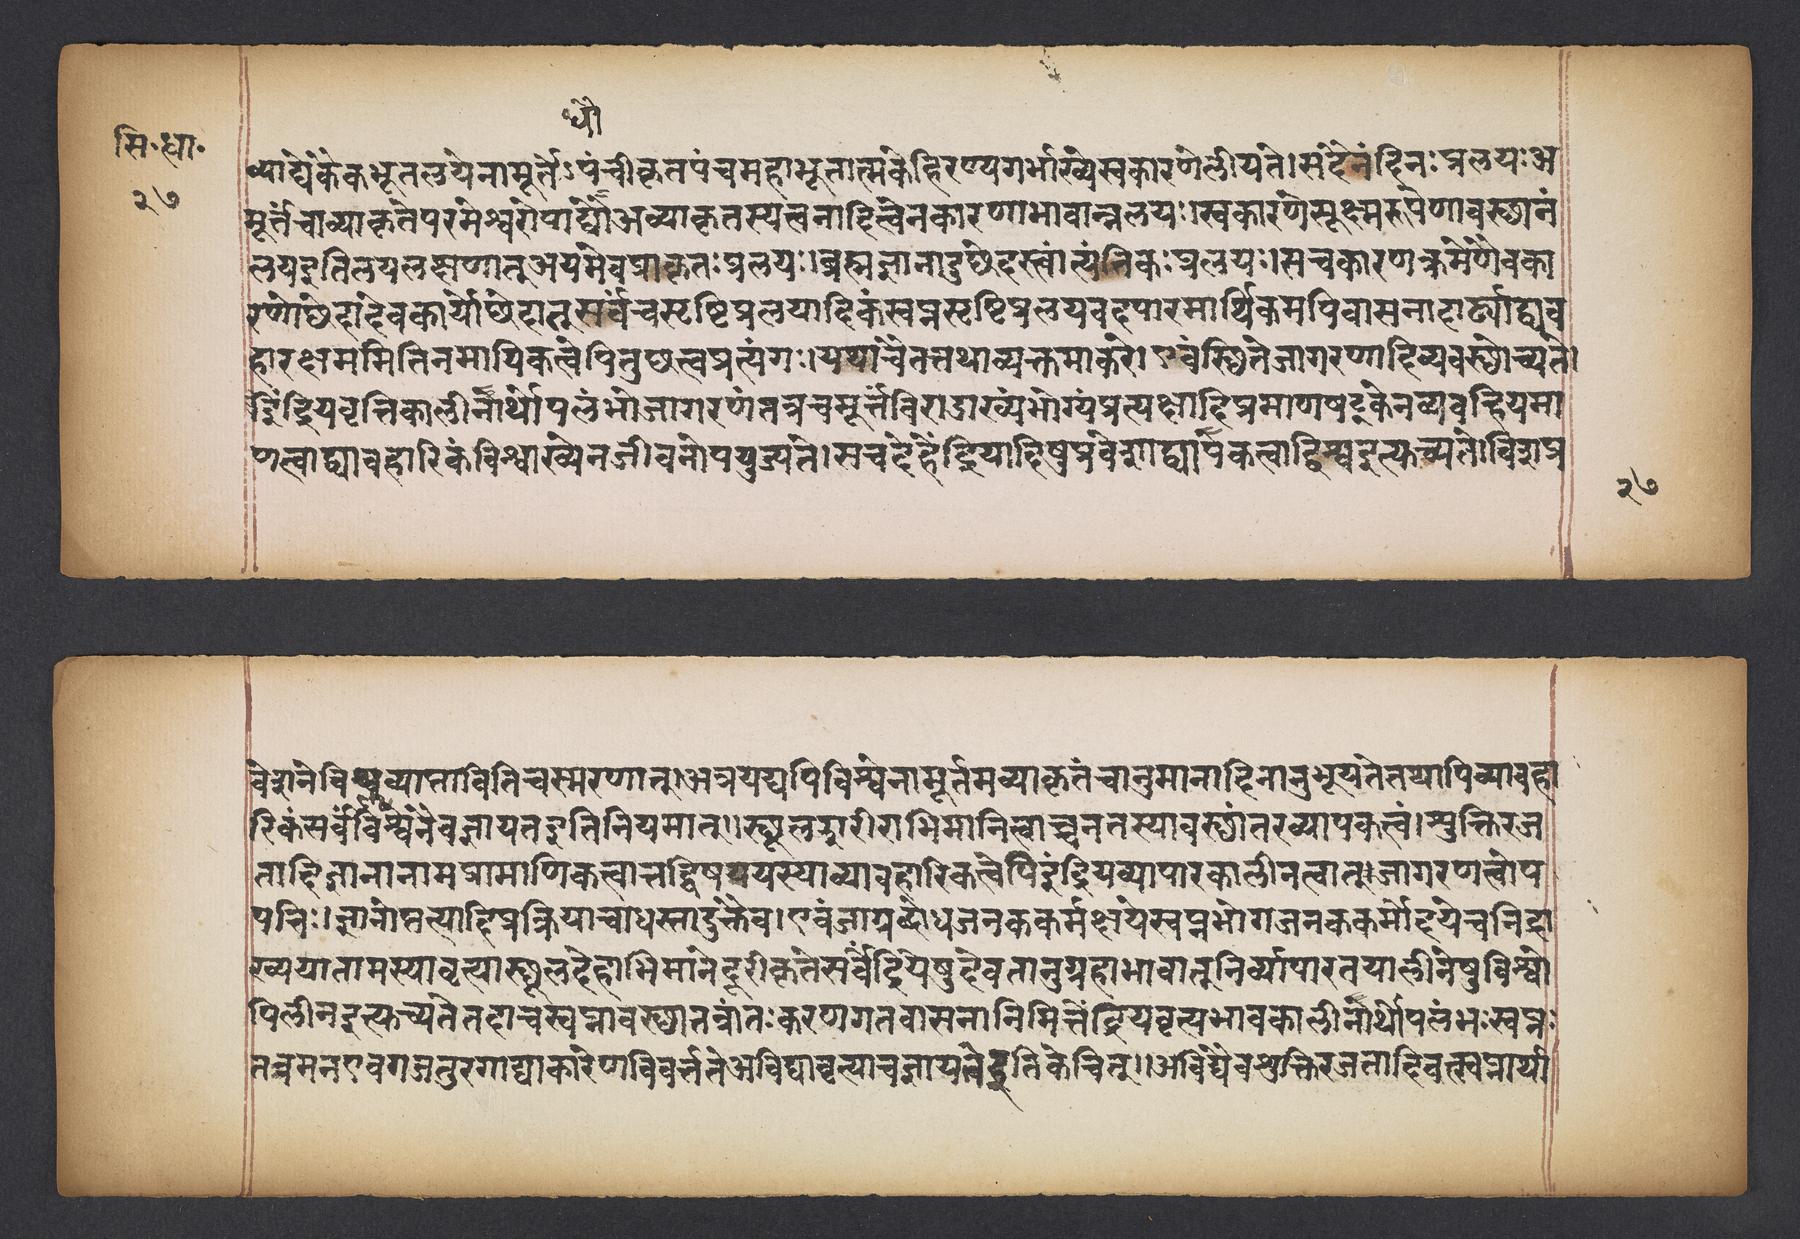 धौ
सि॰धा॰
२७
थ्याद्येकैकभूतलयेनामूर्त्तेऽपंचीकृतपंचमहाभूतात्मकेहिरण्यगर्भाख्येस्वकारणेलीयते।सदैनंदिनःप्रलयःअ
मूर्त्तंचाव्याकृतेपरमेश्वरोपाधौअव्याकृतस्यत्वनादित्वेनकारणाभावान्नलयः।स्वकारणेसूक्ष्मरूपेणावस्थानं
लयइतिलयलक्षणात्अयमेवप्राकृतःप्रलयः।ब्रह्मज्ञानादुछेदस्त्वात्यंतिकःप्रलयः।सचकारणक्रमेणैवका
रणोछेदादेवकार्योछेदात्सर्वंचसृष्टिप्रलयादिकंस्वप्नसृष्टिप्रलयवदपारमार्थिकमपिवासनादार्ढ्याद्व्यव
हारक्षममितिनमायिकत्वेपितुछत्वप्रत्यंगः।यथाचैतत्तथाव्यक्तमाकरे।एवंस्थितेजागरणादिव्यवस्थोच्यते।
इंद्रियवृत्तिकालीनोर्थोपलंभोजागरणंतत्रचमूर्त्तंविराडाख्यंभोग्यंप्रत्यक्षादिप्रमाणषट्केनव्यवह्रियमा
णत्वाद्व्यावहारिकंविश्वाख्येनजीवनोपयुज्यते।सचदेहेंद्रियादिषुप्रवेशाद्व्यापकत्वाद्विश्वइत्युच्यते।विशप्र
२७
वेशनेविष्लृव्याप्तावितिचस्मरणात्।अत्रयद्यपिविश्वेनामूर्तमव्याकृतंचानुमानादिनानुभूयतेतथापिव्यावहा
रिकंसर्वंविश्वेनैवज्ञायतइतिनियमात्।।स्थूलशरीराभिमानित्वाच्चनतस्यावस्थांतरव्यापकत्वं।शुक्तिरज
तादिज्ञानानामप्रामाणिकत्वात्तद्विषययस्याव्यावहारिकत्वेपिइंद्रियव्यापारकालीनत्वात्।जागरणत्वोप
पत्तिः।ज्ञानोत्पत्त्यादिप्रक्रियाचाधस्तादुक्तैव।एवंजाग्रद्भोधजनककर्मक्षयेस्वप्नभोगजनककर्मोदयेचनिद्रा
ख्ययातामस्यावृत्यास्थूलदेहाभिमानेदूरीकृतेसर्वेंद्रियेषुदेवतानुग्रहाभावात्निर्व्यापारतयालीनेषुविश्वो
पिलीनइत्युच्यतेतदाचस्वप्नावस्थातत्रांतःकरणगतवासनानिमित्तेंद्रियवृत्यभावकालीनोर्थोपलंभःस्वप्नः
तत्रमनएवगजतुरगाद्याकारेणविवर्त्ततेअविद्यावृत्याचज्ञायतेइतिकेचित्।।अविद्यैवशुक्तिरजतादिवत्स्वप्नार्था